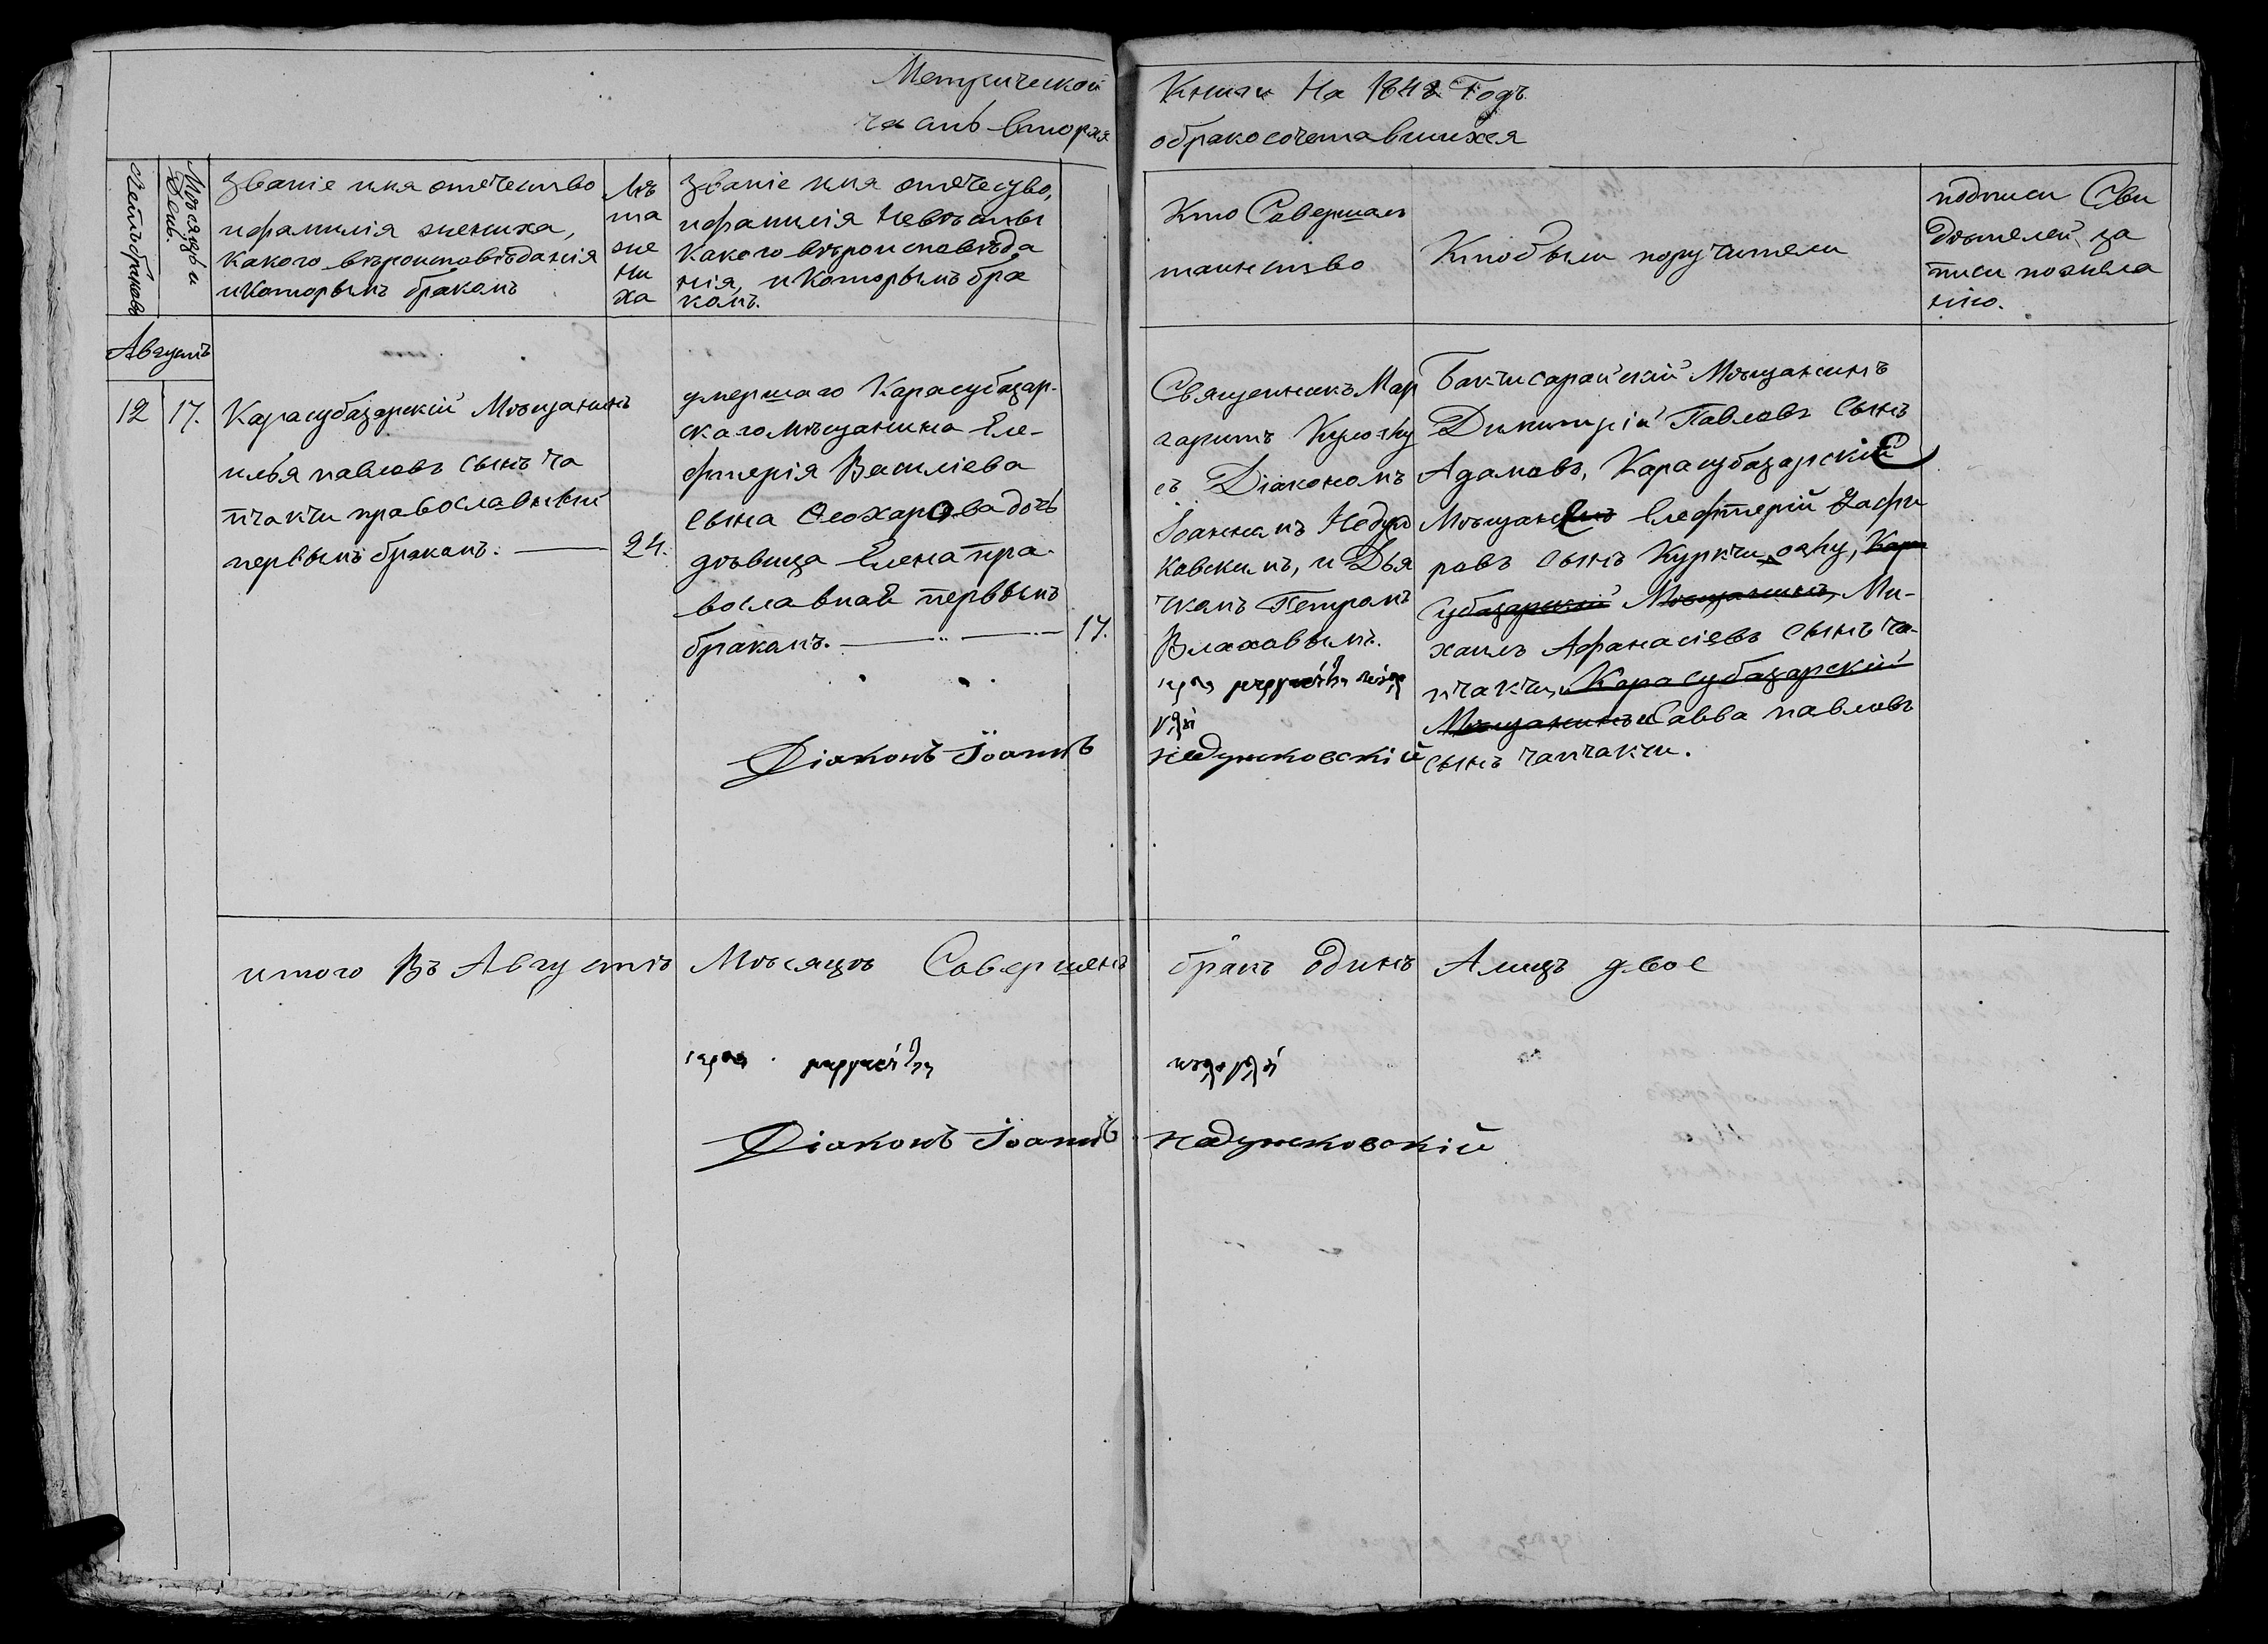 Метрической Книги На 1842 Годъ
часть вторая обракосочетавшихся
Счетъ браковъ
Мѣсяцъ и День.
Званіе имя отечество
ифамилія жениха,
какого вѣроисповѣданія
икоторымъ бракомъ
Лѣ
та
же
ни
ха
Званіе имя отечесво,
ифамилія Невѣсты
Какого вѣроисповѣда
нія, икоторымъ бра
комъ.
Кто Совершал
таинство
Кто были поручители
подписи Сви
дѣтелей за
писи пожела
нію.
Августъ
12 17.
Карасубазарскій Мѣщанинъ
илья павловъ сынъ ча
пчакчи православный
первымъ бракомъ. — 24.
умершаго Карасубазар-
скаго мѣщанина Еле-
фтерія Василіева
сына Ѳеохарова дочь
дѣвица Елена пра-
вославнай первымъ
бракомъ. — 17.
Діаконъ Іоаннъ
Священникъ Мар
гаритъ
съ Діакономъ
Іоанномъ Недуж
ковскимъ, и Дья
чкомъ Петромъ
Влаховымъ.
недужковскій
Бакчисарайскій Мѣщанинъ
Димитрій Павловъ Сынъ
Адамовъ, Карасубазарские
Мѣщане Елефтерій Зафи
ровъ сынъ Куркчи оглу, Кара
субазарский Мѣщанинъ, Ми-
хаилъ Афанасіевъ сынъ ча-
пчакчи, и Карасубазарский
Мѣщанинъ и Савва павловъ
сынъ чапчакчи.
итого Въ Августѣ Мѣсяцѣ Совершенъ бракъ Одинъ Алицъ двое
Діаконъ Іоаннъ недужковскій